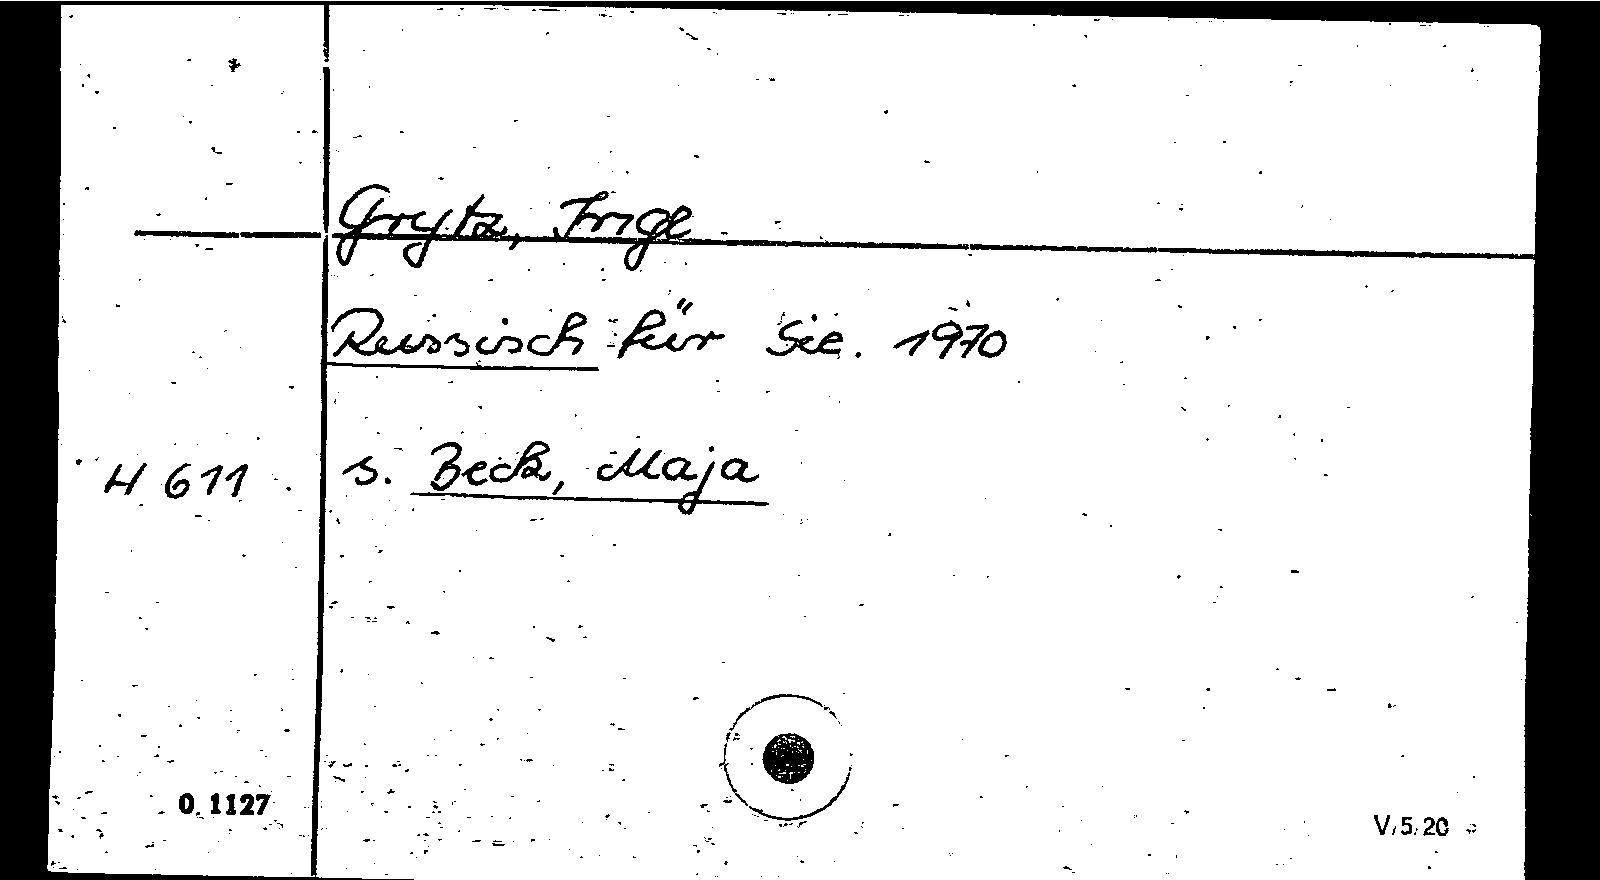 Grytz, Inge
Russisch für Sie. 1970
H 611 s. Beck, Maja
0. 1127
V/5/20